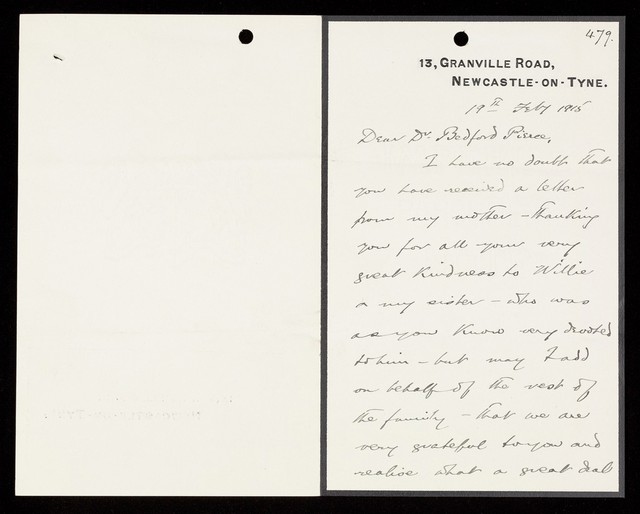 479.
13, GRANVILLE ROAD,
NEWCASTLE-ON-TYNE.
19th Feby 1915
Dear Dr. Bedford Pierce,
I have no doubt that
you have received a letter
from my mother - thanking
you for all your very
great kindness to Willie
& my sister - who was
as you know very devoted
to him - but may I add
on behalf of the rest of
the family - that we are
very grateful to you and
realise what a great deal